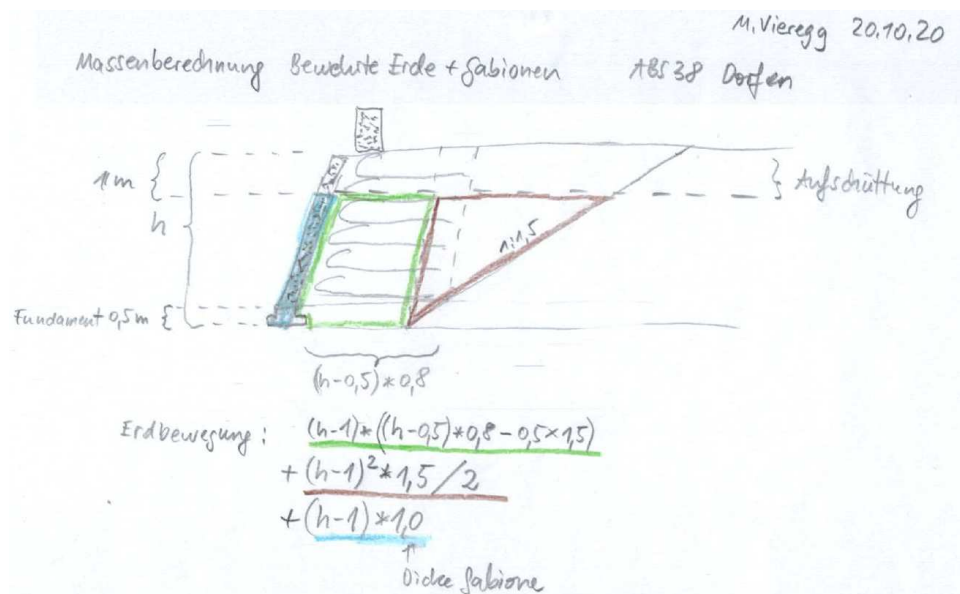 M. Vieregg 20.10.20
Massenberechnung Bewehrte Erde + Gabionen ABS 38 Dorfen
1m
h
Aufschüttung
1:1,5
Fundament 0,5m
(h-0,5)*0,8
Erdbewegung: (h-1)*((h-0,5)*0,8-0,5×1,5)
+(h-1)²*1,5/2
+(h-1)*1,0
↑
Dicke Gabione